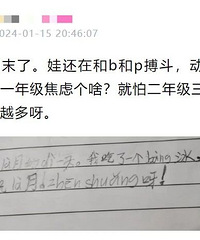 2024-01-15 20:46:07
末了。娃还在和b和p搏斗，动
一年级焦虑个啥？就怕二年级三
越多呀。
一天。我吃了一个bīng冰
月 zhēn shuǎng呀！